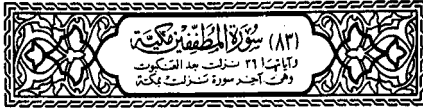 (٨٣) سورة المطففين مكية
وآياتها ٣٦ نزلت بعد العنكبوت
وهى آخر سورة نزلت بمكة